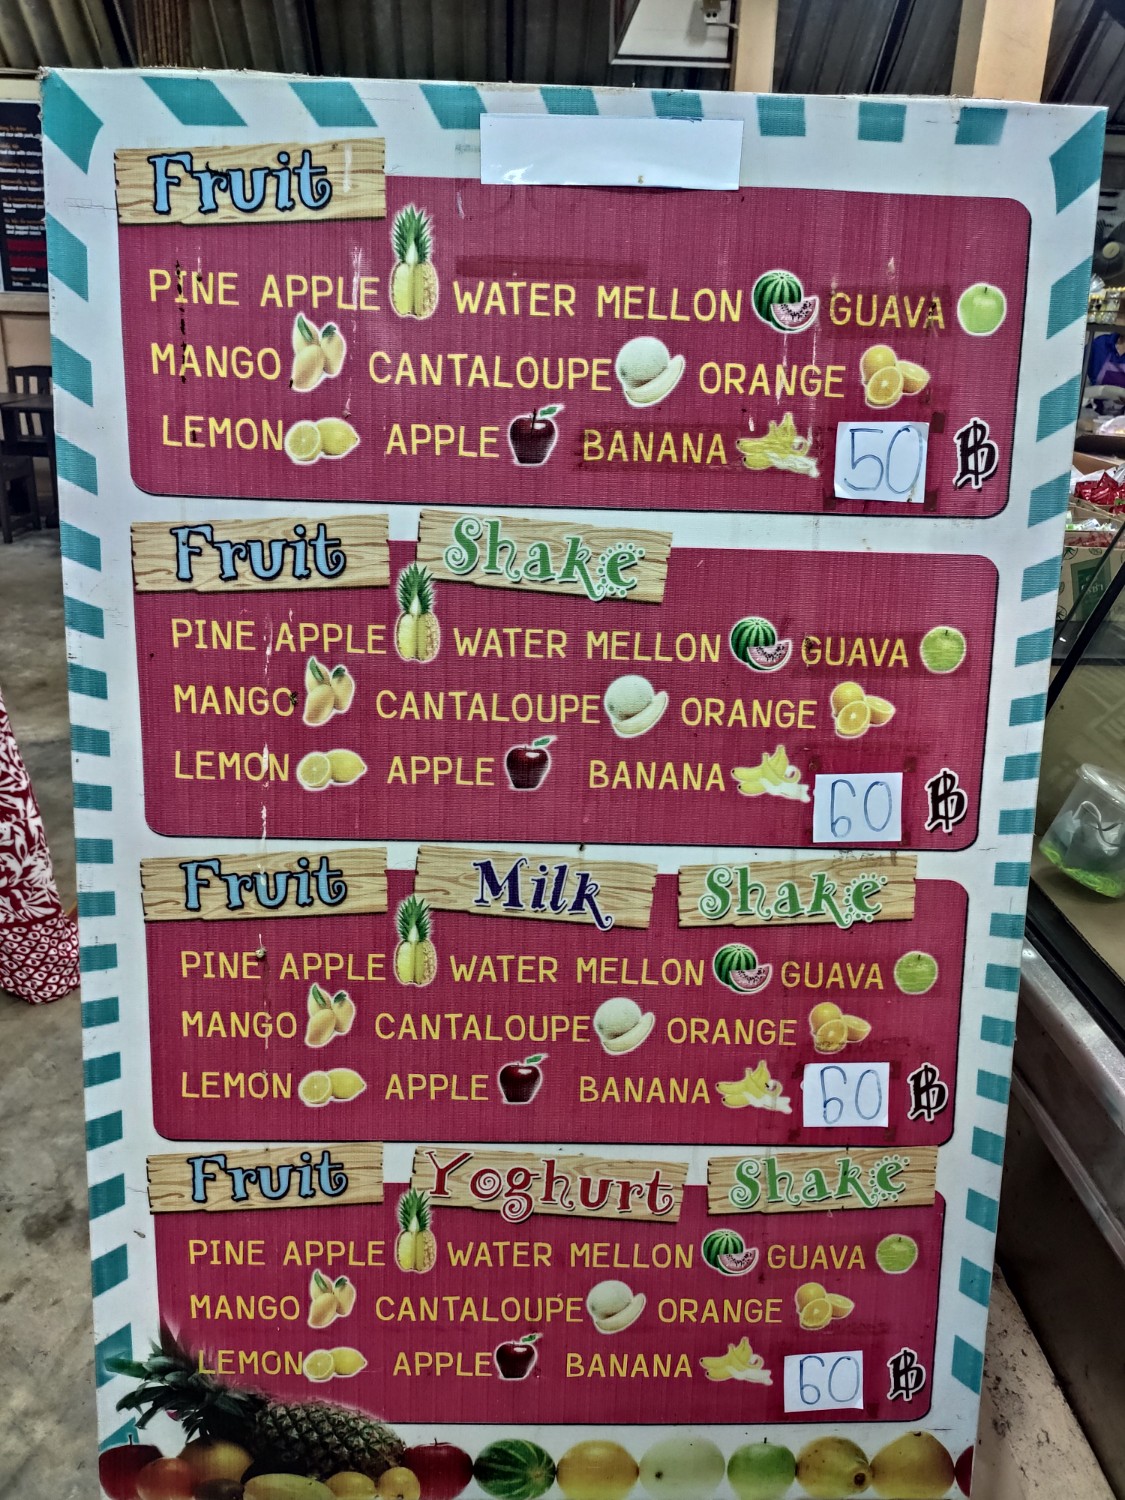 Fruit
PINE APPLE WATER MELLON GUAVA
MANGO CANTALOUPE ORANGE
LEMON APPLE BANANA 50 ฿
Fruit Shake
PINE APPLE WATER MELLON GUAVA
MANGO CANTALOUPE ORANGE
LEMON APPLE BANANA 60 ฿
Fruit Milk Shake
PINE APPLE WATER MELLON GUAVA
MANGO CANTALOUPE ORANGE
LEMON APPLE BANANA 60 ฿
Fruit Yoghurt Shake
PINE APPLE WATER MELLON GUAVA
MANGO CANTALOUPE ORANGE
LEMON APPLE BANANA 60 ฿